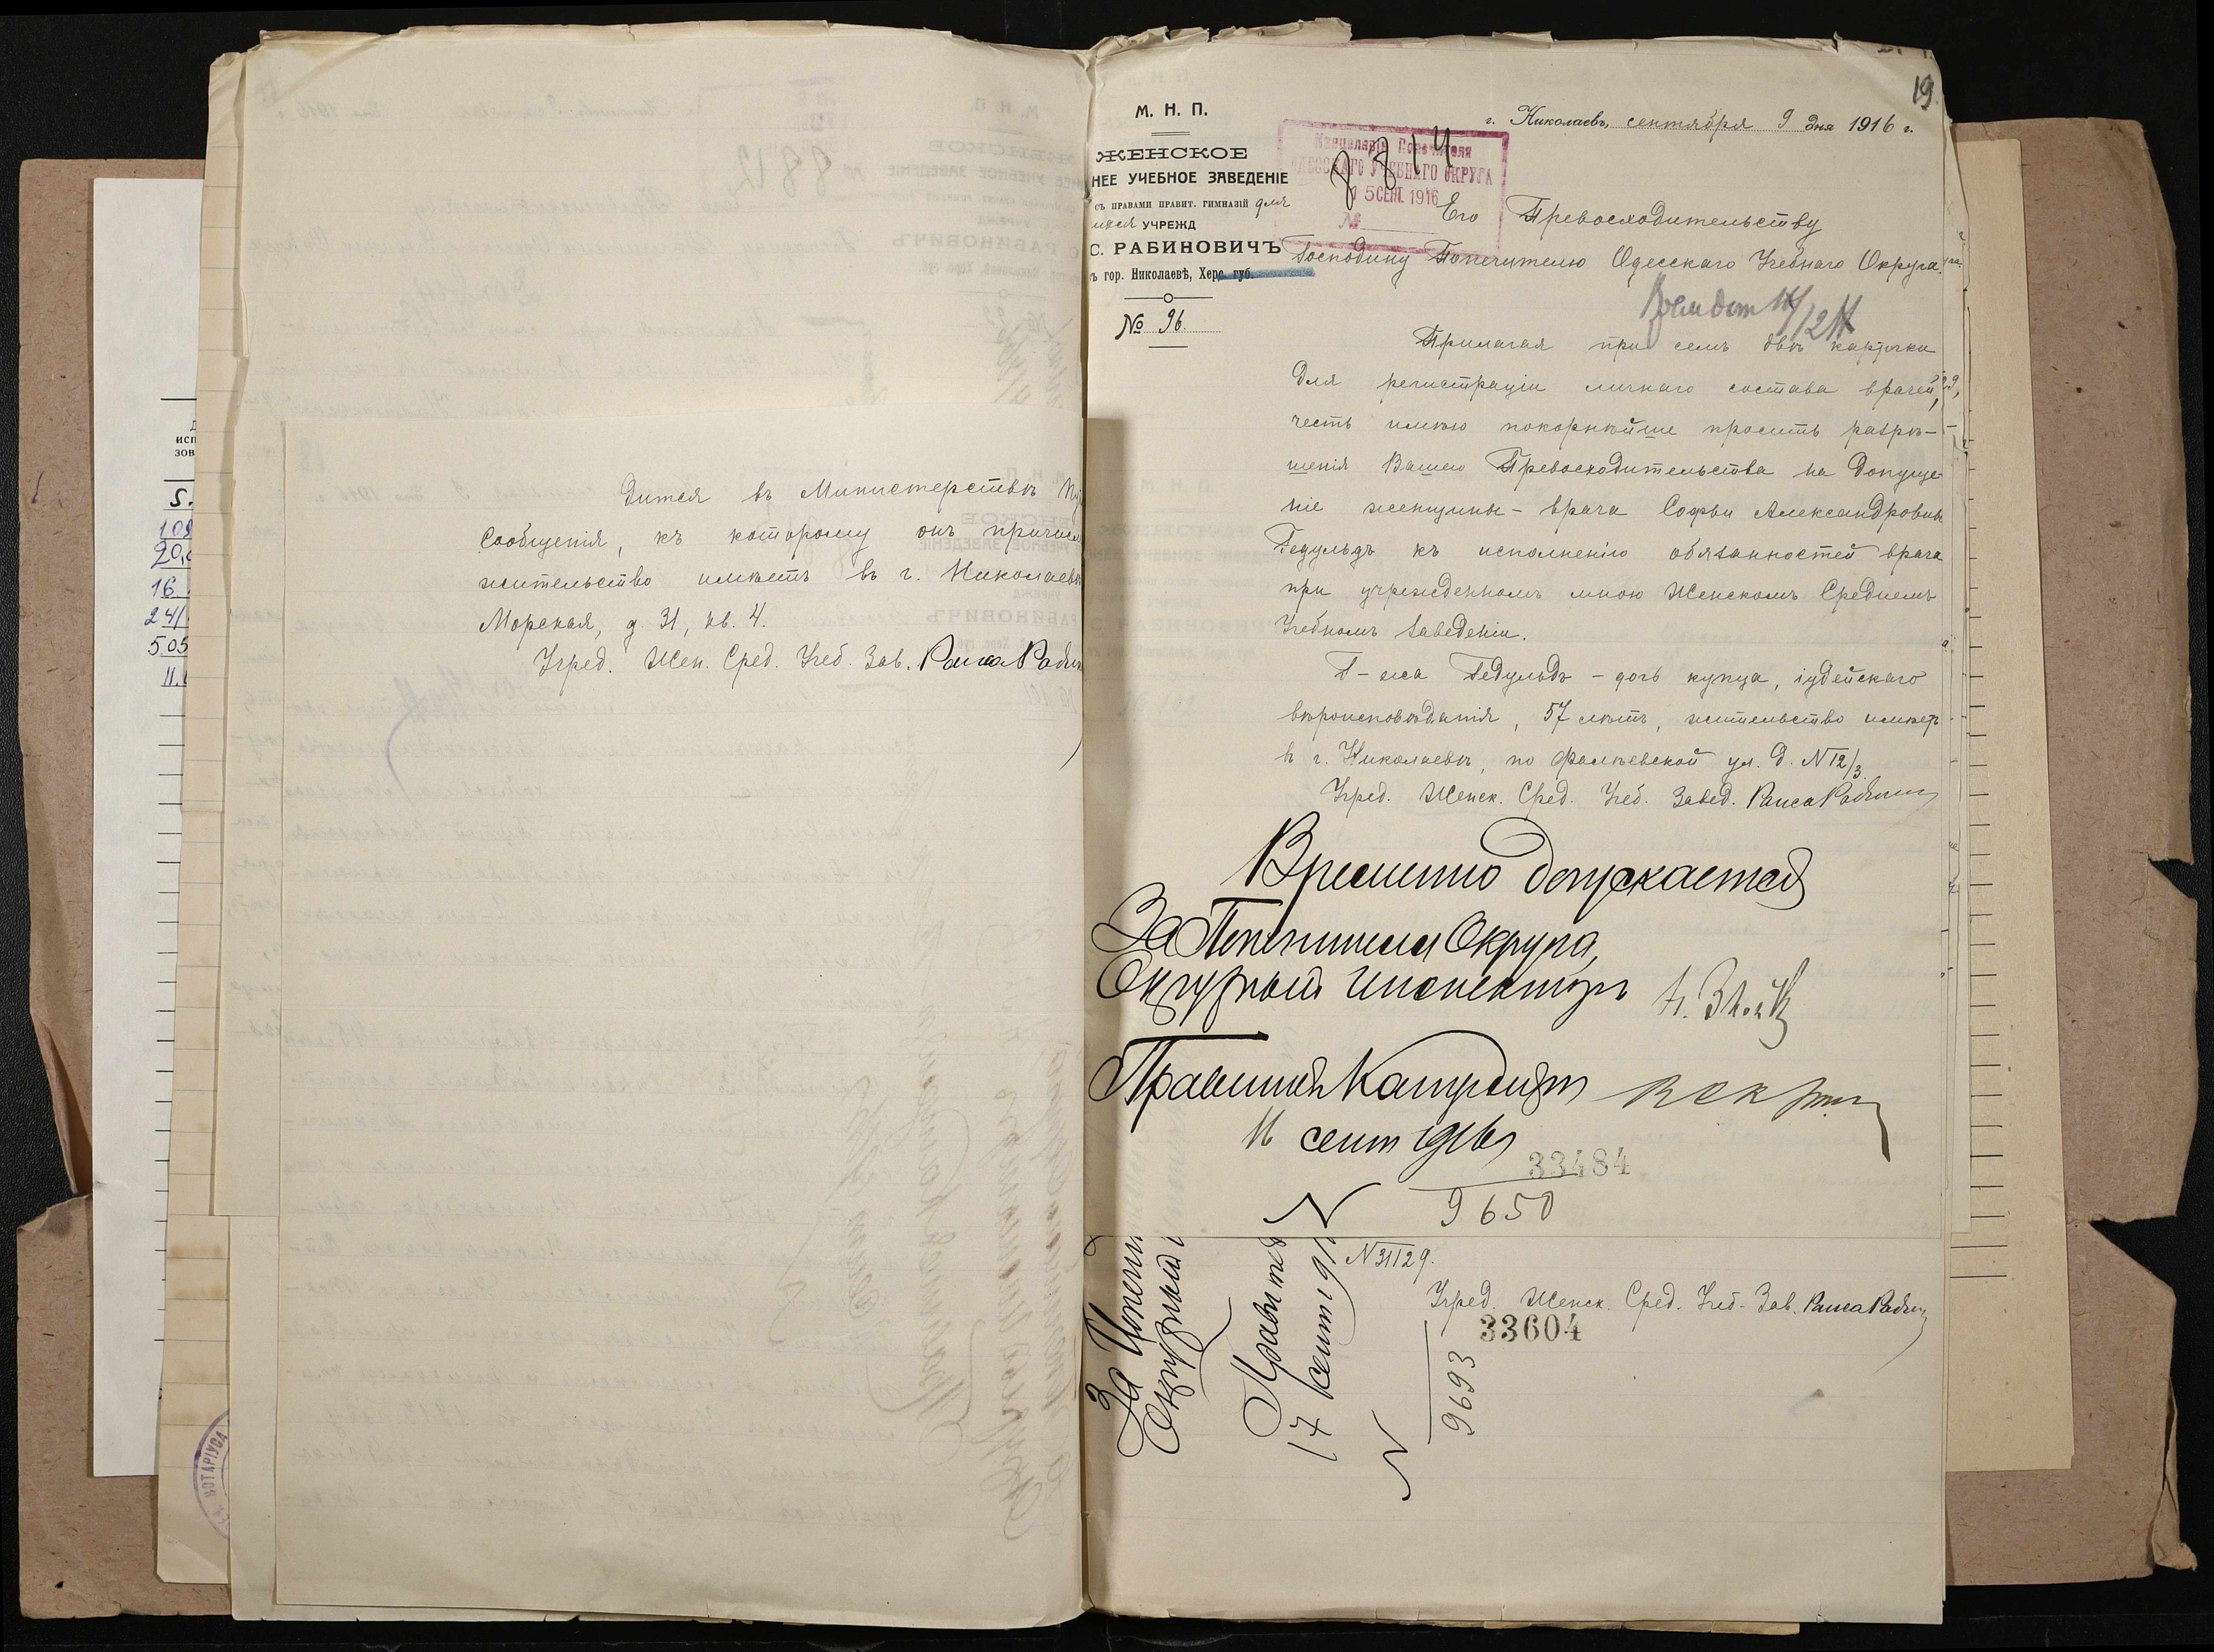 дится въ Министерствѣ
сообщенія, къ которому онъ причисл
жительство имѣетъ въ г. Николаевѣ
Морская, д 31, кв. 4.
Учред. Жен. Сред. Учеб. Зав. Раиса Рабин
19
М. Н. П.
ЖЕНСКОЕ
НЕЕ УЧЕБНОЕ ЗАВЕДЕНІЕ
СЪ ПРАВАМИ ПРАВИТ. ГИМНАЗІЙ для
УЧРЕЖД
С. РАБИНОВИЧЪ
ъ гор. Николаевѣ, Херс. губ.
№ 96.
г. Николаевъ, сентября 9 дня 1916 г.
Канцелярія Попечителя
ОДЕССКАГО УЧЕБНАГО ОКРУГА
5 СЕНТ. 1916
№
8814
Его Превосходительству
Господину Попечителю Одесскаго Учебнаго Округа.
Прилагая при семъ двѣ карточки
для регистраціи личнаго состава врачей,
честь имѣю покорнѣйше просить разрѣ-
шенія Вашего Превосходительства на допуще-
ніе женщины-врача Софьи Александровны
Гедульдъ къ исполненію обязанностей врача
при учрежденномъ мною Женскомъ Среднемъ
Учебномъ Заведеніи.
Г-жа Гедульдъ - дочь купца, іудейскаго
вѣроисповѣданія, 57 лѣтъ, жительство имѣетъ
въ г. Николаевѣ, по Фалѣевской ул. д. N 12/3.
Учред. Женск. Сред. Учеб. Завед. Раиса Рабинович
Временно допускается
За Попечителя Округа,
Окружный Инспекторъ
Правитель Канцеляріи
16 сент 1916
33484
N 9650
За Попечи
Окружный
Правител
17 сент 191
N 31129.
Учред. Женск. Сред. Учеб. Зав. Раиса Рабин
33604
N 9693
S.
109
20,
16
241
505
11.
НОТАРІУСА